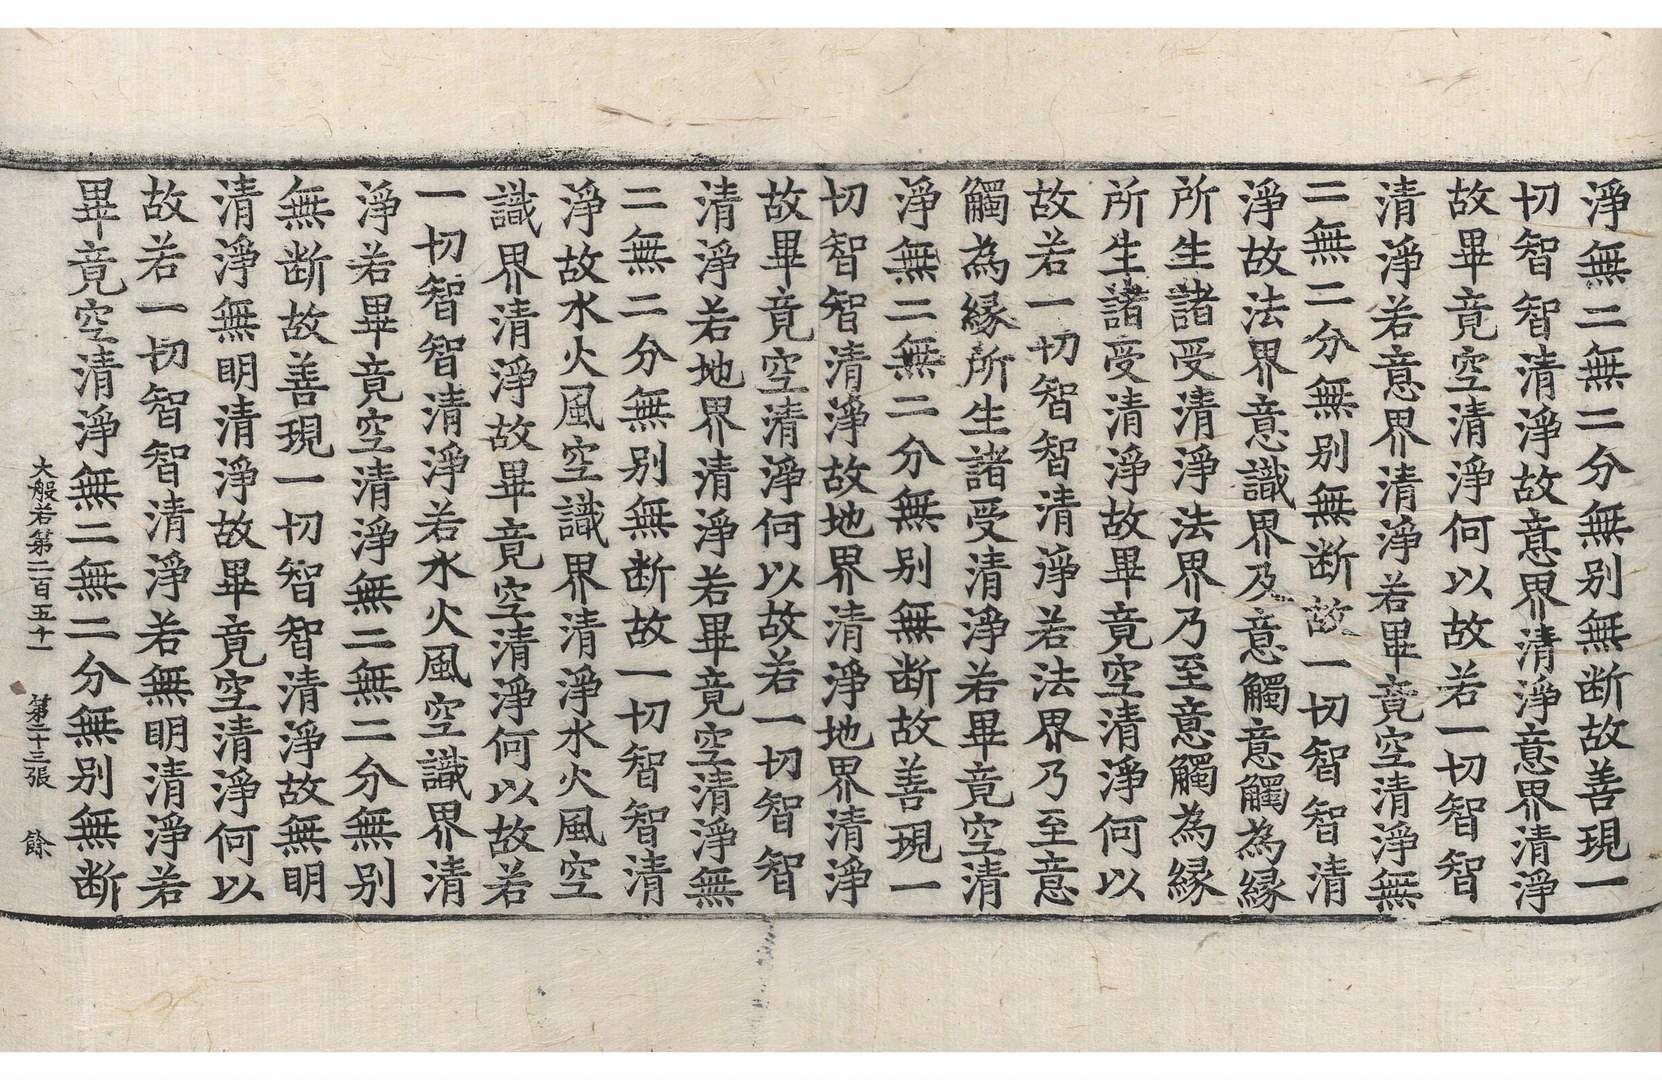 淨無二無二分無別無断故善現一
切智智清淨故意界清淨意界清淨
故畢竟空清淨何以故若一切智智
清淨若意界清淨若畢竟空清淨無
二無二分無別無断故一切智智清
淨故法界意識界及意觸意觸為縁
所生諸受清淨法界乃至意觸為縁
所生諸受清淨故畢竟空清淨何以
故若一切智智清淨若法界乃至意
觸為縁所生諸受清淨若畢竟空清
淨無二無二分無別無断故善現一
切智智清淨故地界清淨地界清淨
故畢竟空清淨何以故若一切智智
清淨若地界清淨若畢竟空清淨無
二無二分無別無断故一切智智清
淨故水火風空識界清淨水火風空
識界清淨故畢竟空清淨何以故若
一切智智清淨若水火風空識界清
淨若畢竟空清淨無二無二分無別
無断故善現一切智智清淨故無明
清淨無明清淨故畢竟空清淨何以
故若一切智智清淨若無明清淨若
畢竟空清淨無二無二分無別無断
大般若第二百五十 第二十三張 餘